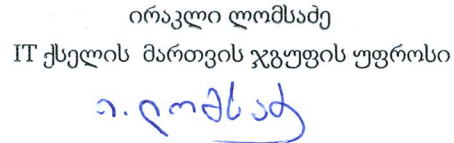 ირაკლი ლომსაძე
IT ქსელის მართვის ჯგუფის უფროსი
ი. ლომსაძ